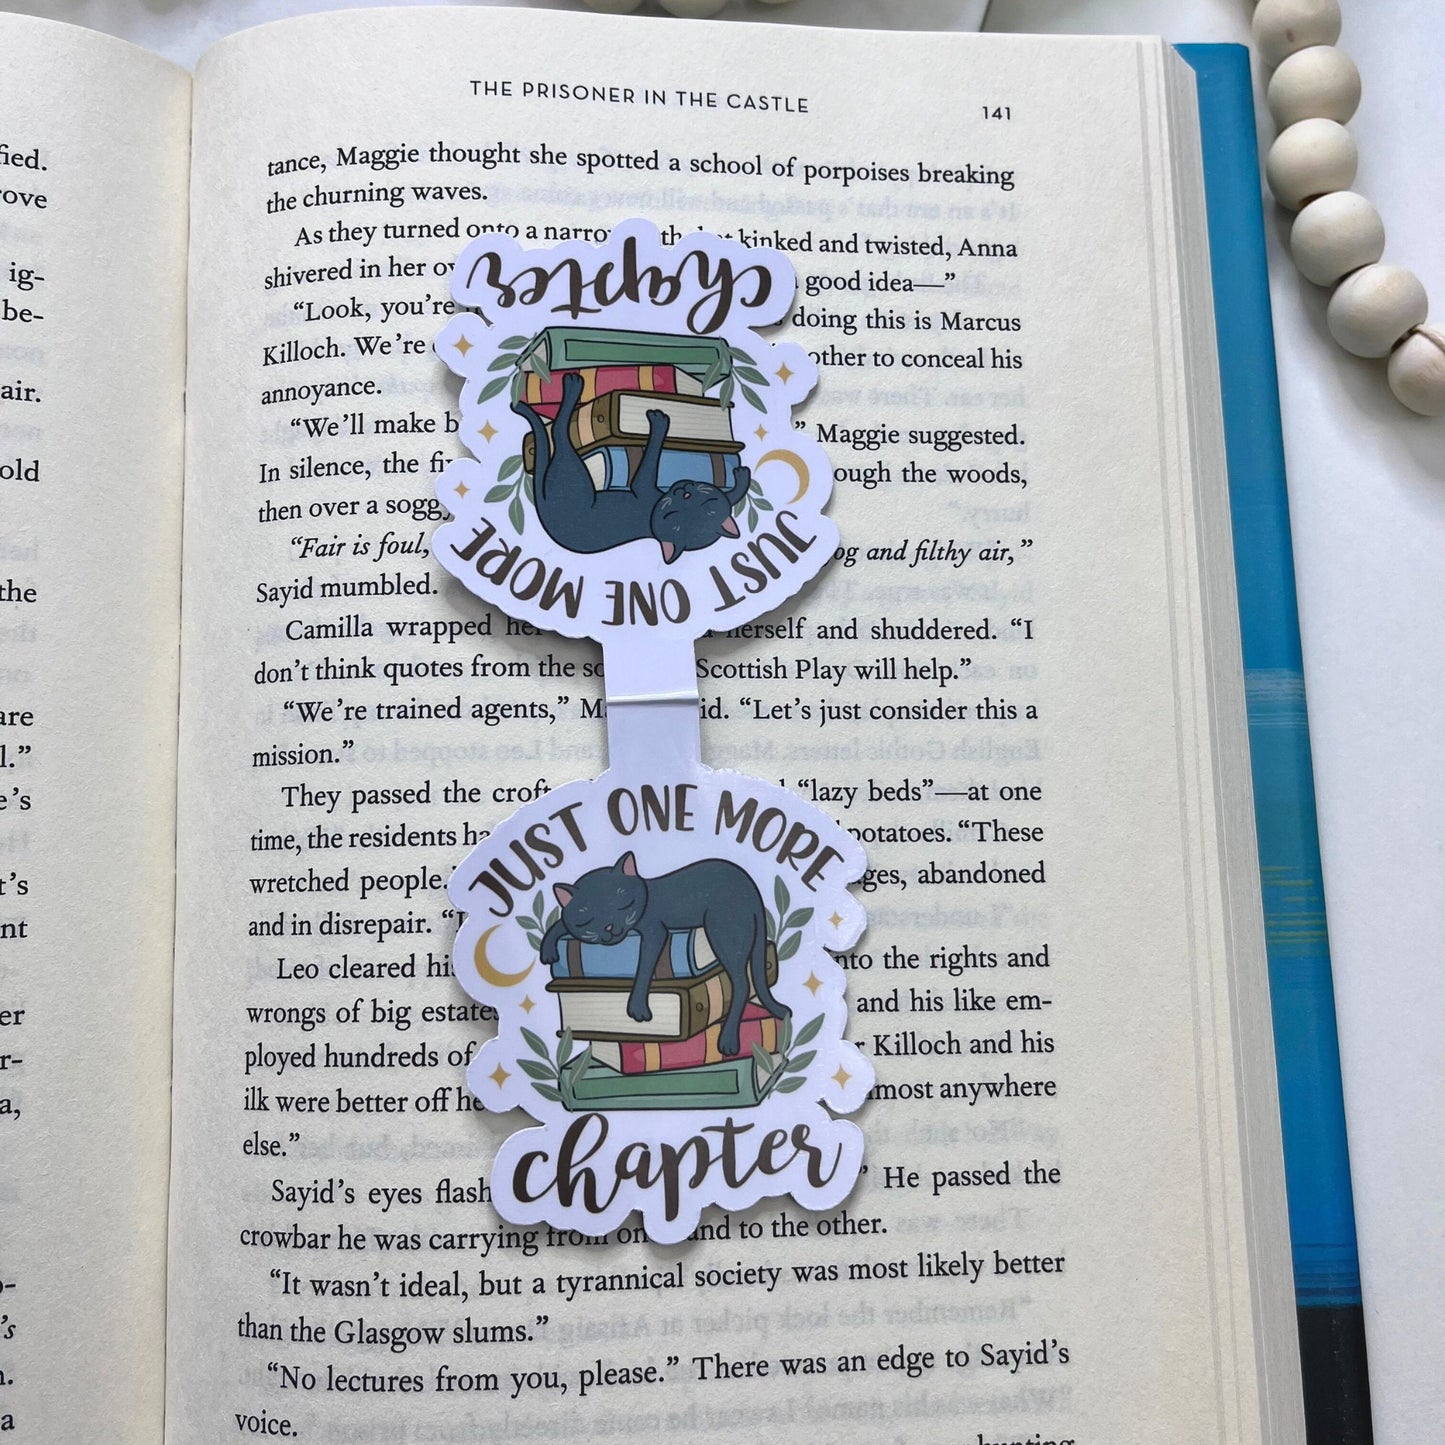 THE PRISONER IN THE CASTLE
141
tance, Maggie thought she spotted a school of porpoises breaking
the churning waves.
As they turned onto a narrow kinked and twisted, Anna
shivered in her good idea—”
“Look, you’re doing this is Marcus
Killoch. We’re other to conceal his
annoyance.
“We’ll make ” Maggie suggested.
In silence, the the woods,
then over a soggy
“Fair is foul, and filthy air,”
Sayid mumbled.
Camilla wrapped her herself and shuddered. “I
don’t think quotes from the Scottish Play will help.”
“We’re trained agents,” “Let’s just consider this a
mission.”
They passed the “lazy beds”—at one
time, the residents potatoes. “These
wretched people. abandoned
and in disrepair.
Leo cleared his the rights and
wrongs of big estates and his like em-
ployed hundreds of Killoch and his
ilk were better off almost anywhere
else.”
Sayid’s eyes ” He passed the
crowbar he was carrying from and to the other.
“It wasn’t ideal, but a tyrannical society was most likely better
than the Glasgow slums.”
“No lectures from you, please.” There was an edge to Sayid’s
voice.
JUST ONE MORE
chapter
JUST ONE MORE
chapter
fied.
ig-
be-
air.
old
the
are
er
a